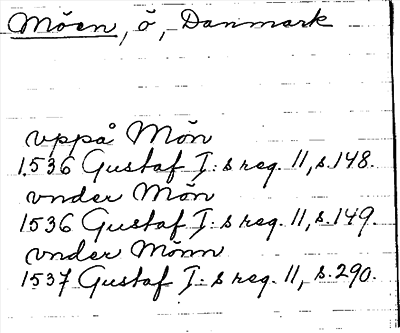 Möen, ö, Danmark
vppå Mön
1536 Gustaf I:s reg. 11, s. 148.
vnder Mön
1536 Gustaf I:s reg. 11, s. 149.
vnder Mönn
1537 Gustaf I:s reg. 11, s. 290.